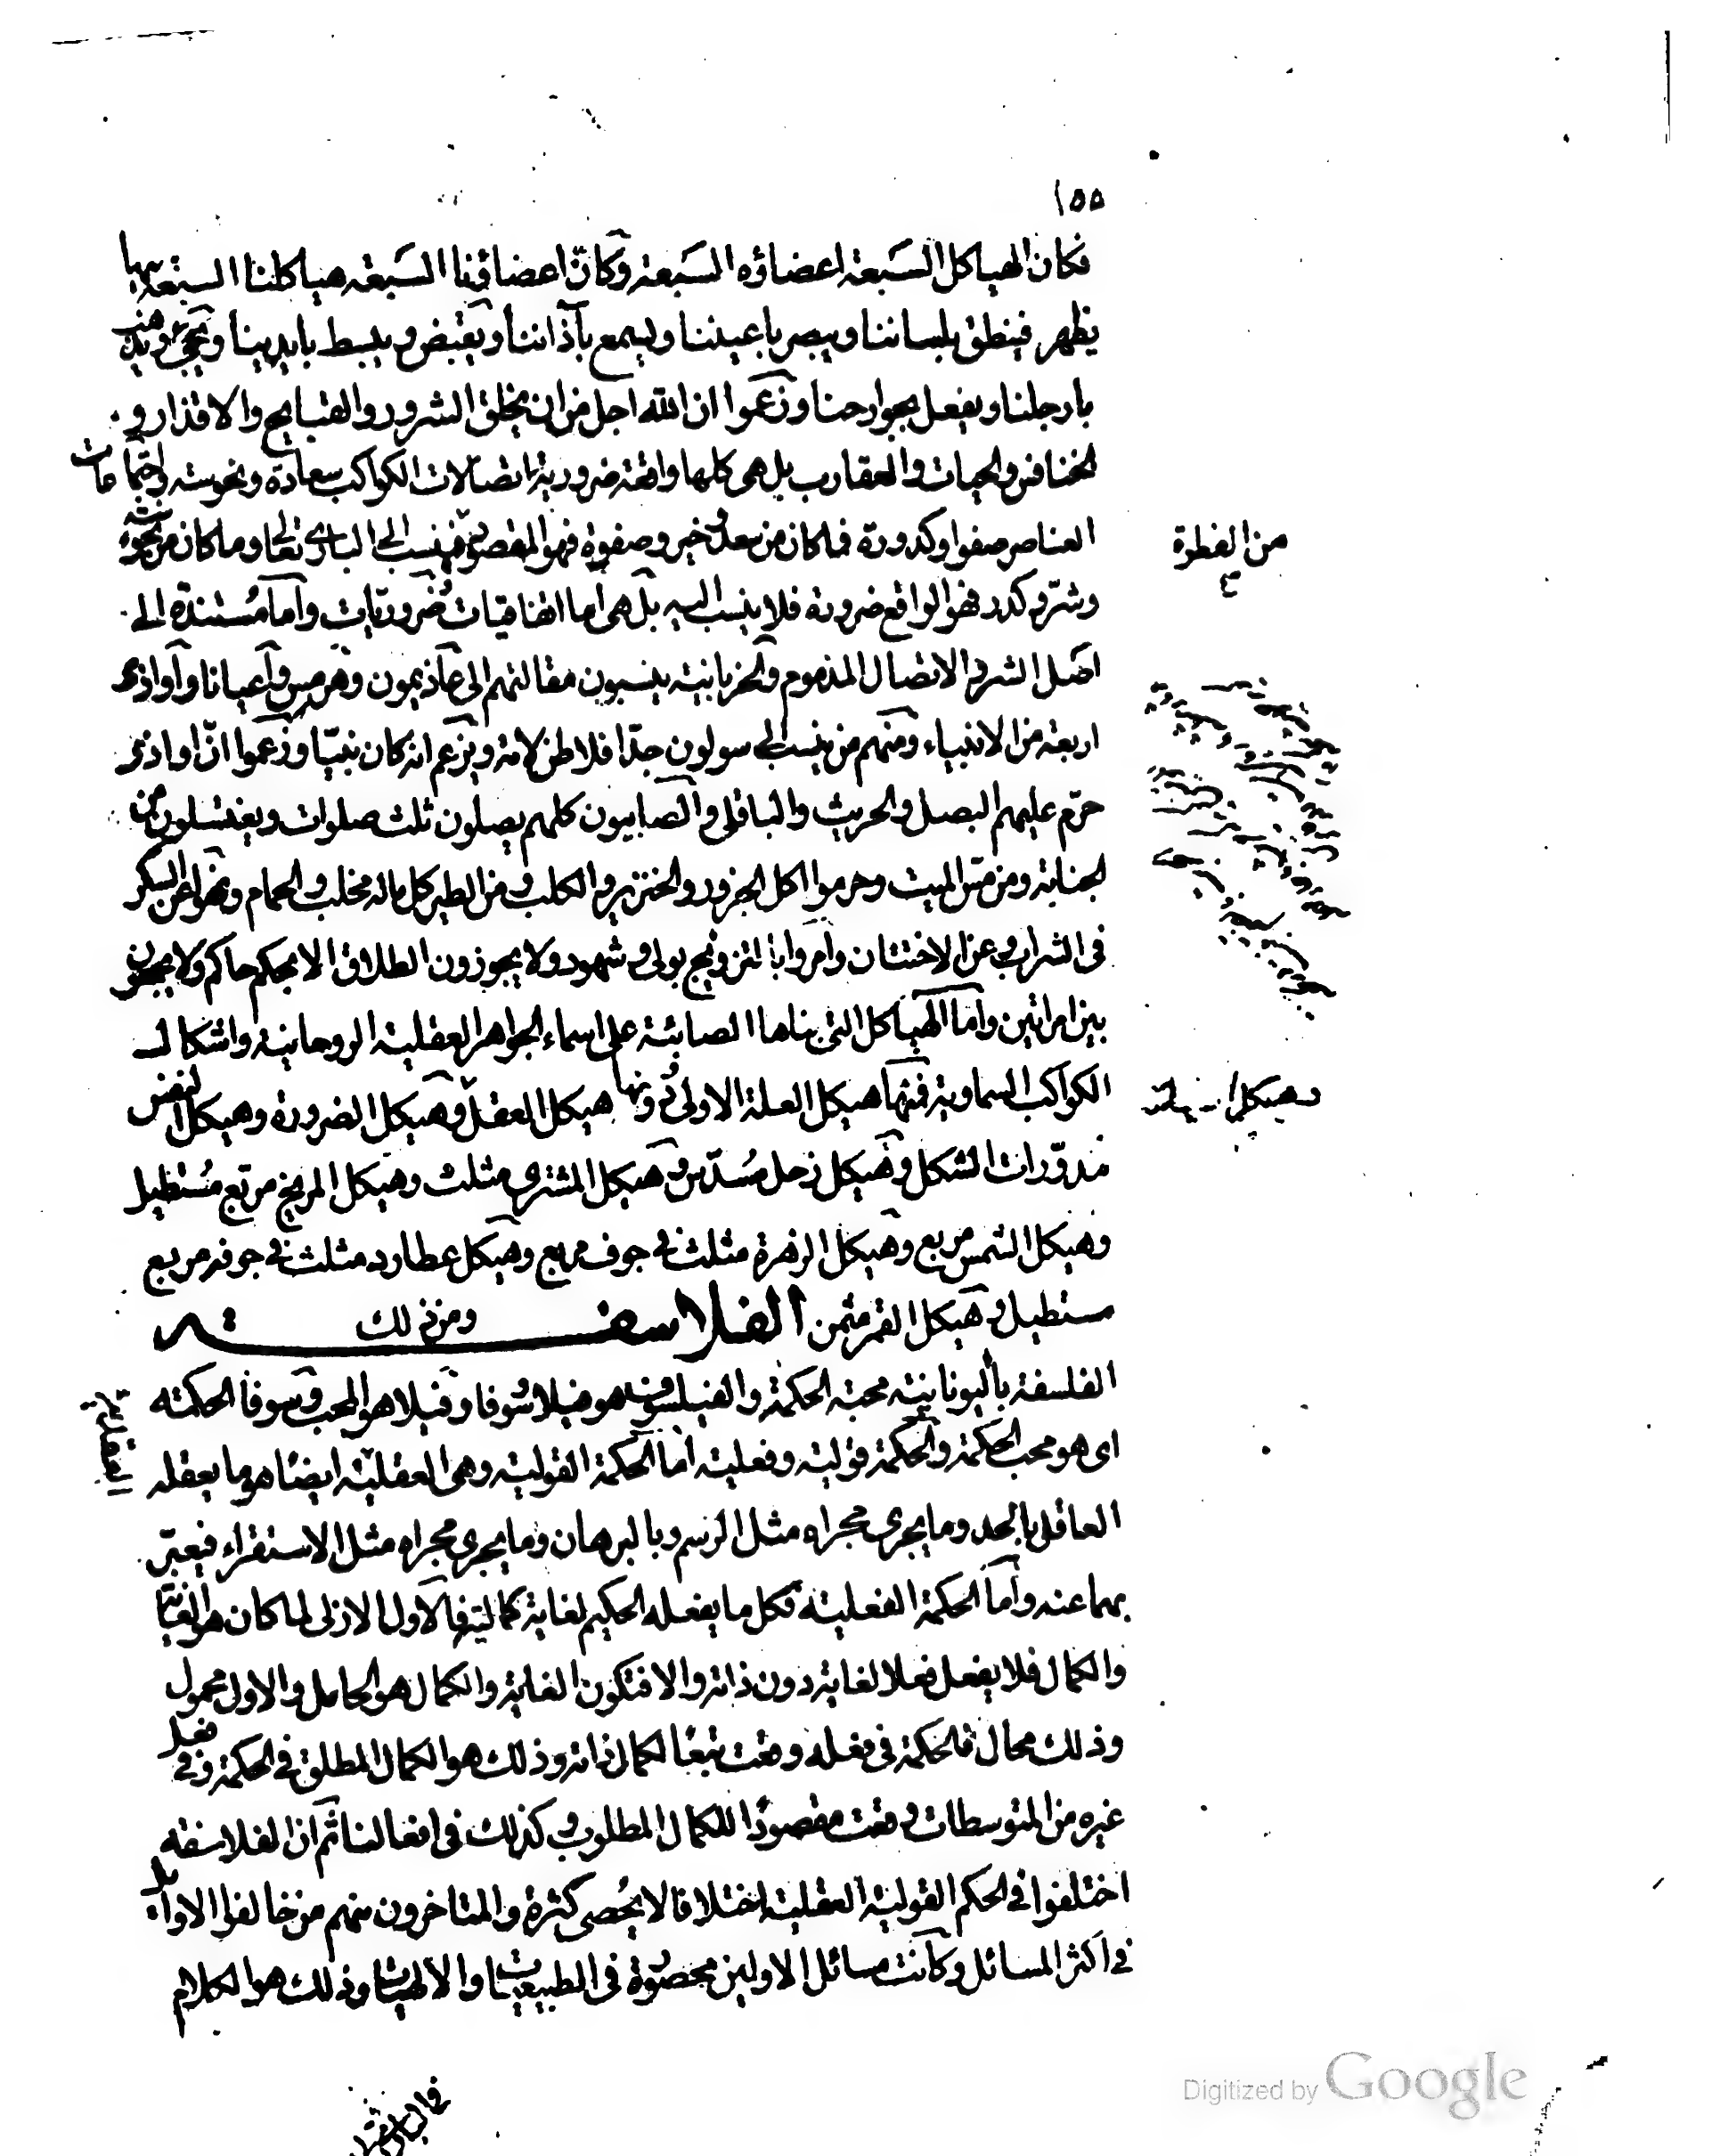 ١٥٥
فكان الهياكل السبعة اعضاؤه السبعة وكانّ اعضاؤنا السبعة هياكلنا السبعة بها
يظهر فينطق بلساننا ويبصر باعيننا ويسمع بآذاننا ويقبض ويبسط بايدينا ويجئ ويذهب
بارجلنا ويفعل بجوارحنا وزعموا ان الله اجل من ان يخلق الشرور والقبايح والاقذار و
الخنافس والحيات والعقارب بل هى كلها واقعة ضرورية باتصالات الكواكب سعادة ونحوسة واجتماعات
العناصر صفوا وكدورة فما كان من سعد وخير وصفوة فهو المقصود فينسب الى البارى تعالى وما كان من نحوسة
من الفطرة
وشر وكدر فهو الواقع ضرورة فلا ينسب اليه بل هى اما اتفاقيات وضروريات واما مستندة الى
اصل الشر والاتصال المذموم والحزبانية ينسبون مقالتهم الى عاذيمون وهرمس واعيانا واواذى
اربعة من الانبياء ومنهم من ينسب الى سولون جدّ افلاطن لامه ويزعم انه كان نبيّا وزعموا انّ اواذى
حرّم عليهم البصل والجريث والباقلى والصابيون كلهم يصلون ثلث صلوات ويغتسلون من
الجنابة ومن مسّ الميت وحرموا اكل الجزور والخنزير والكلب ومن الطير كل ماله مخلب والحمام ونهوا عن السكر
فى الشراب وعن الاختتان وامروا بالتزويج بولى وشهود ولا يجوزون الطلاق الا بحكم حاكم ولا يجمعون
بين امراتين واما الهياكل التى بناها الصابئة على اسماء الجواهر العقلية الروحانية واشكال
الكواكب السماوية فمنها هيكل العلة الاولى ودونها هيكل العقل وهيكل الضرورة وهيكل النفس
مدوّرات الشكل وهيكل زحل مسدّس وهيكل المشترى مثلث وهيكل المريخ مربّع مُستطيل
وهيكل الشمس مربع وهيكل الزهرة مثلث فى جوف مربع وهيكل عطارد مثلث فى جوفه مربع
مستطيل وهيكل القمر مثمن الفلاسفة ومن ذلك
الفلسفة باليونانية محبة الحكمة والفيلسوف هو فيلا وسُوفا وفيلا هو المحب وسوفا الحكمة
اى هو محب الحكمة والحكمة قولية وفعلية اما الحكمة القولية وهى العقليّة ايضًا هو ما يعقله
العاقل بالحد وما يجرى مجراه مثل الرسم وبالبرهان وما يجرى مجراه مثل الاستقراء فيعبّر
بهما عنه واما الحكمة الفعلية فكل ما يفعله الحكيم لغاية كمالية فالاول الازلى لما كان هو الغاية
والكمال فلا يفعل فعلا لغاية دون ذاته والا فتكون الغاية والكمال هو الحامل والاول محمول
وذلك محال فالحكمة فى فعله وقعت تبعًا لكمال ذاته وذلك هو الكمال المطلق فى الحكمة وفى فعل
غيره من المتوسطات وقعت مقصودًا للكمال المطلوب وكذلك فى افعالنا ثم ان الفلاسفة
اختلفوا فى الحكم القولية العقلية اختلافا لا يُحصى كثرة والمتاخرون منهم من خالفوا الاوايل
فى اكثر المسائل وكانت مسائل الاولين محصورة فى الطبيعيات والالهيات وذلك هو الكلام
Digitized by Google